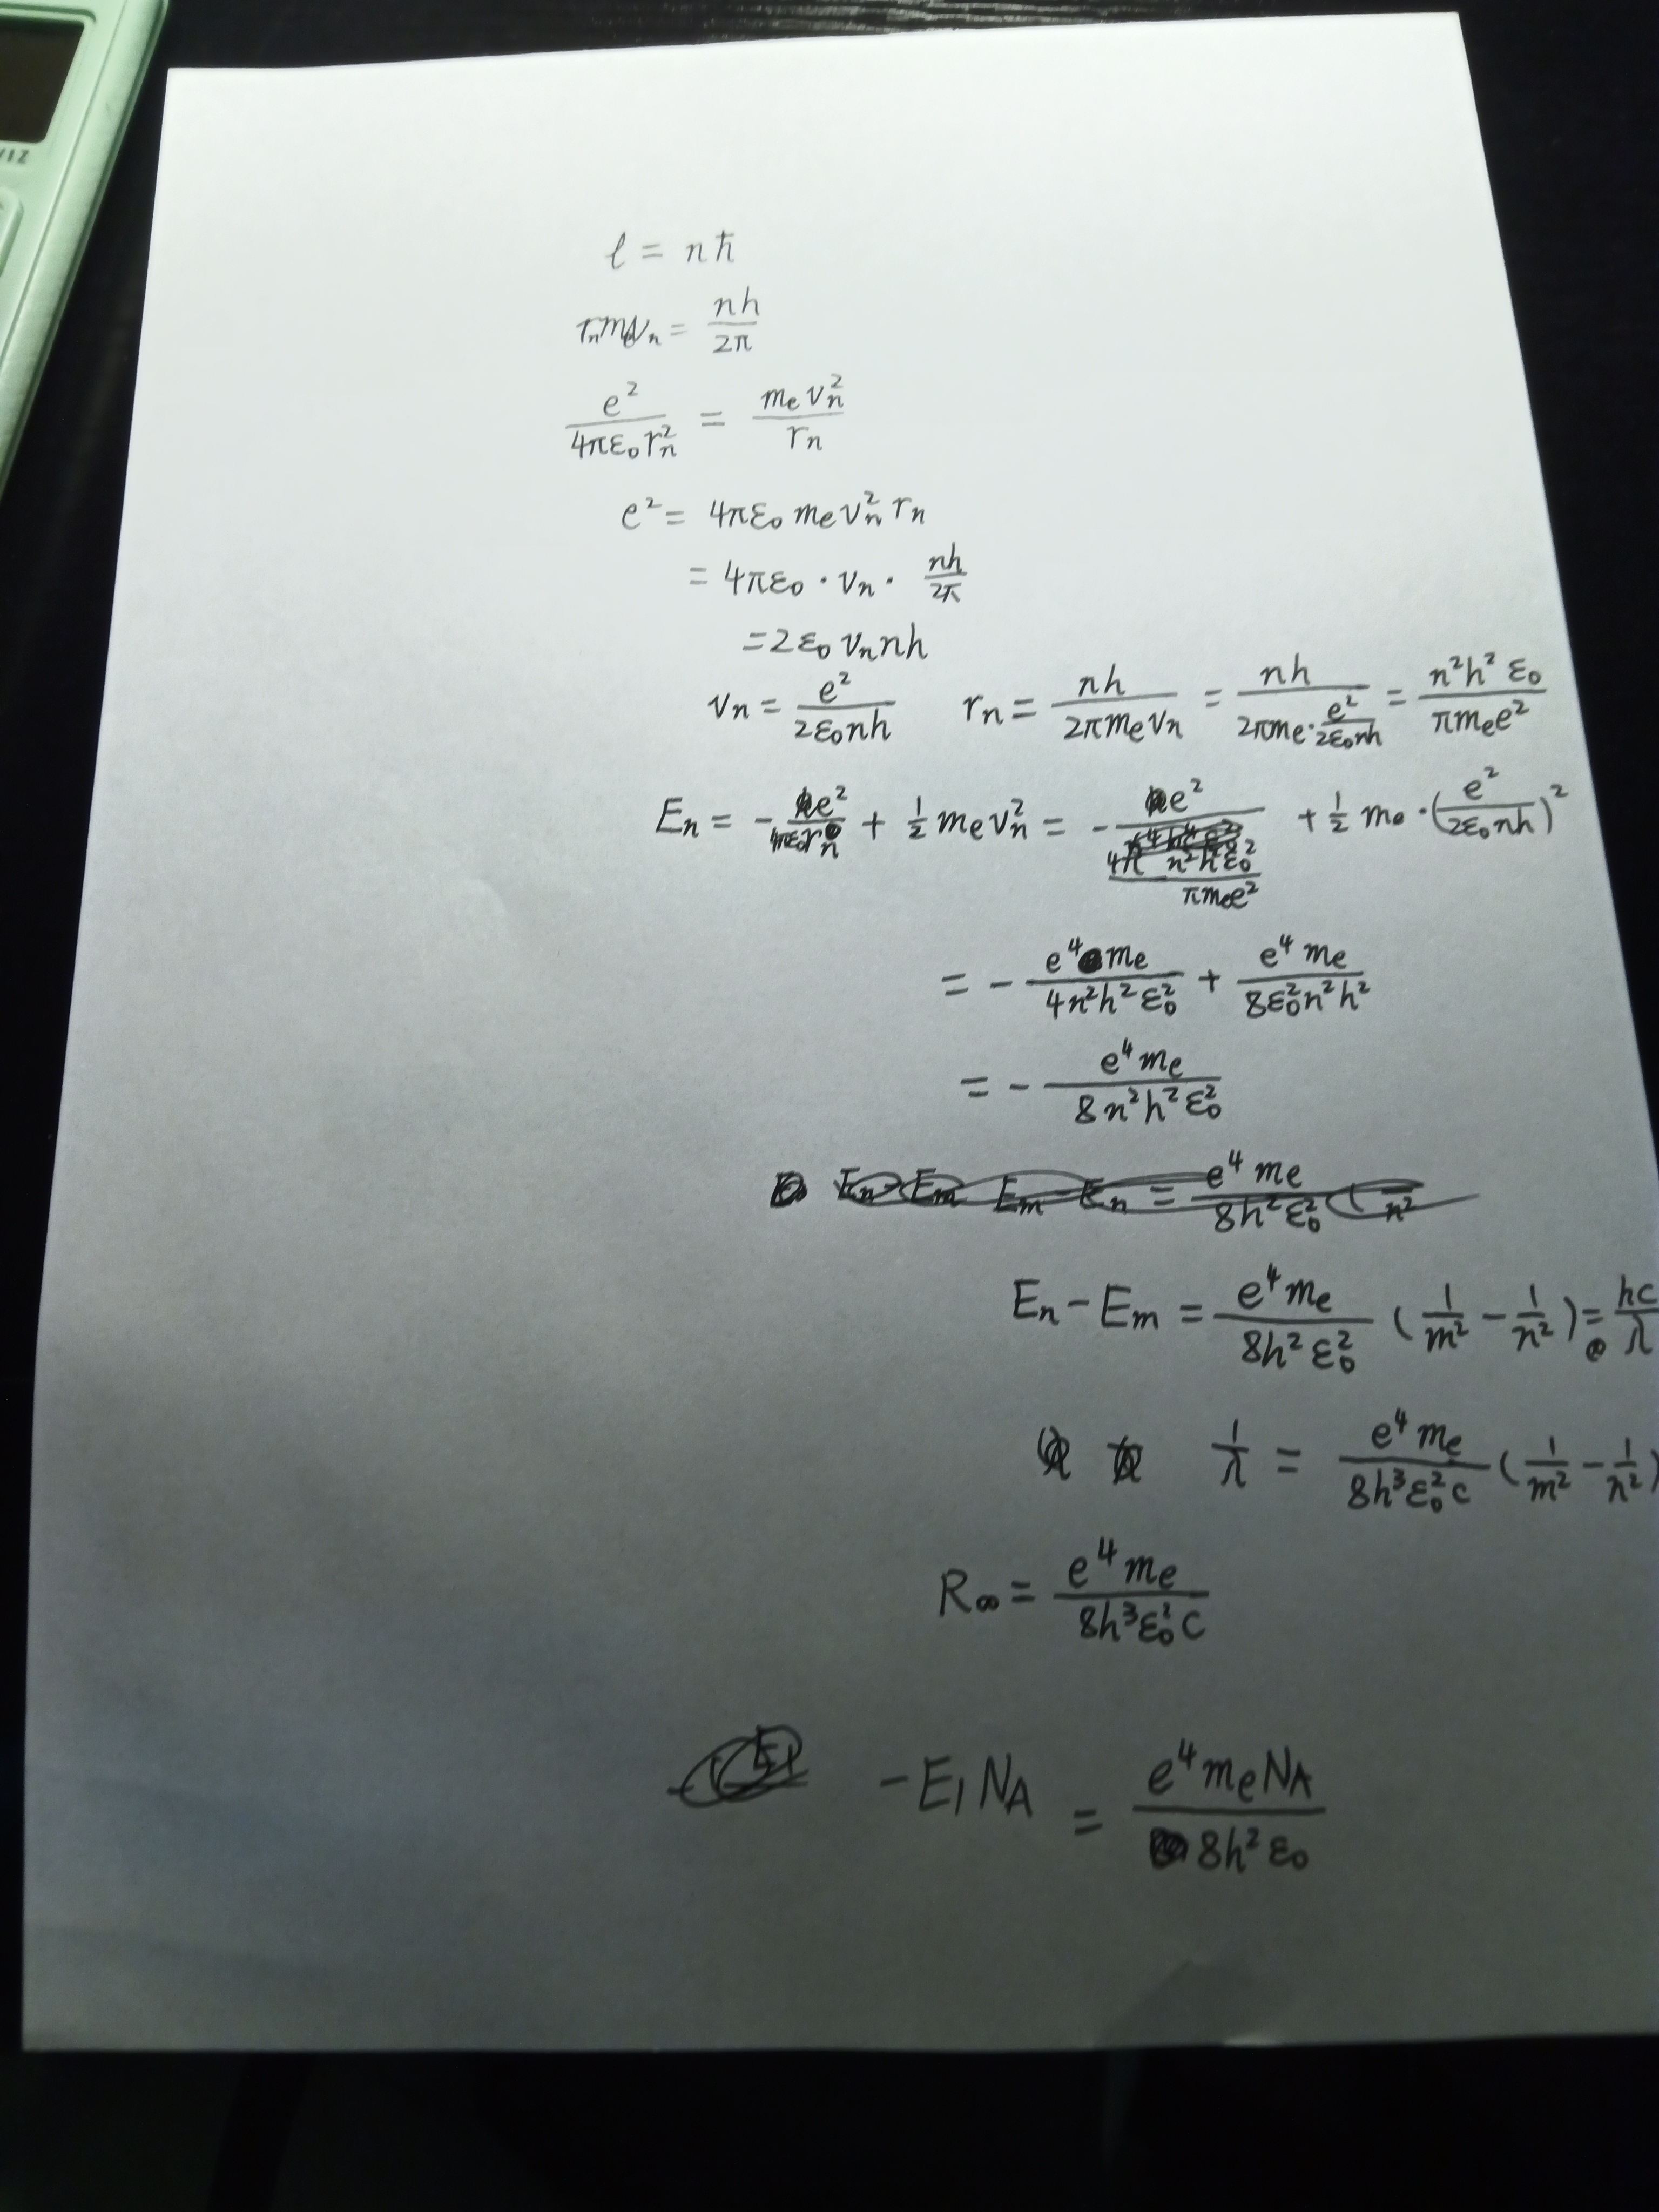 ℓ = nħ
rₙmₑvₙ = nh/2π
e²/4πε₀rₙ² = mₑvₙ²/rₙ
e² = 4πε₀mₑvₙ²rₙ
= 4πε₀·vₙ·nh/2π
= 2ε₀vₙnh
vₙ = e²/2ε₀nh rₙ = nh/2πmₑvₙ = nh/(2πmₑ·e²/2ε₀nh) = n²h²ε₀/πmₑe²
Eₙ = -e²/4πε₀rₙ + ½mₑvₙ² = -e²/(4π n²h²ε₀²/πmₑe²) + ½mₑ·(e²/2ε₀nh)²
= -e⁴mₑ/4n²h²ε₀² + e⁴mₑ/8ε₀²n²h²
= -e⁴mₑ/8n²h²ε₀²
Eₙ - Eₘ = e⁴mₑ/8h²ε₀² (1/m² - 1/n²) = hc/λ
1/λ = e⁴mₑ/8h³ε₀²c (1/m² - 1/n²)
R∞ = e⁴mₑ/8h³ε₀²c
-E₁N_A = e⁴mₑN_A/8h²ε₀